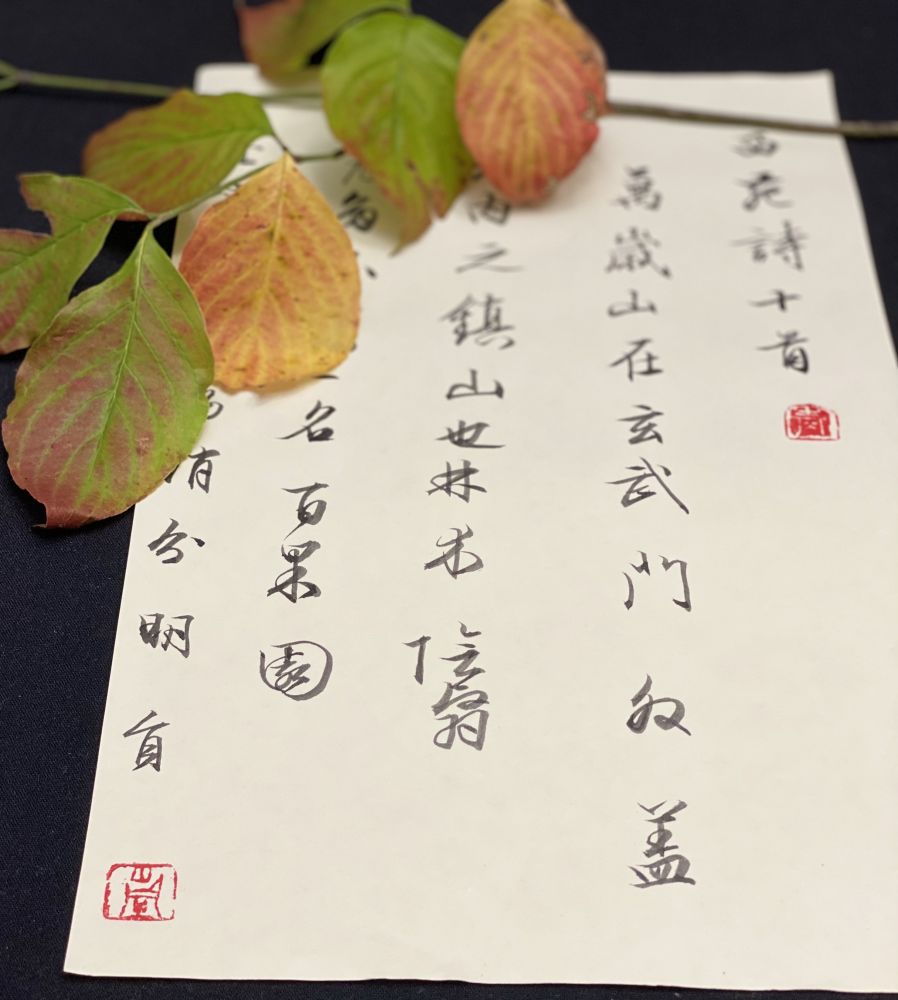 西苑詩十首
萬歲山在玄武門外蓋
内之鎮山也林木陰翳
多名百果園
消分明員